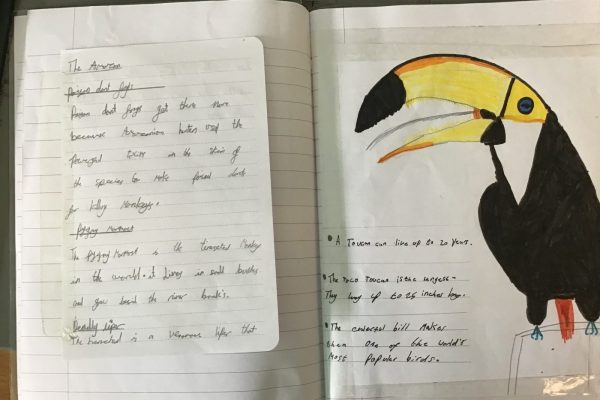 The Amazon
Poison dart frogs
Poison dart frogs got there name
because Amazonian hunters used the
powerful toxins in the skin of
the species to make poison darts
for killing monkeys.
pygmy Marmoset
The pygmy Marmoset is the monkey
in the world. it living in small bushes
and you beside the river bank's.
Deadly viper
The is a venomous viper that
• A Toucan can live up to 20 years.
• The Toco Toucan is the largest-
They long up to 25 inches long.
• The colored bill makes
them one of the world's
most popular birds.